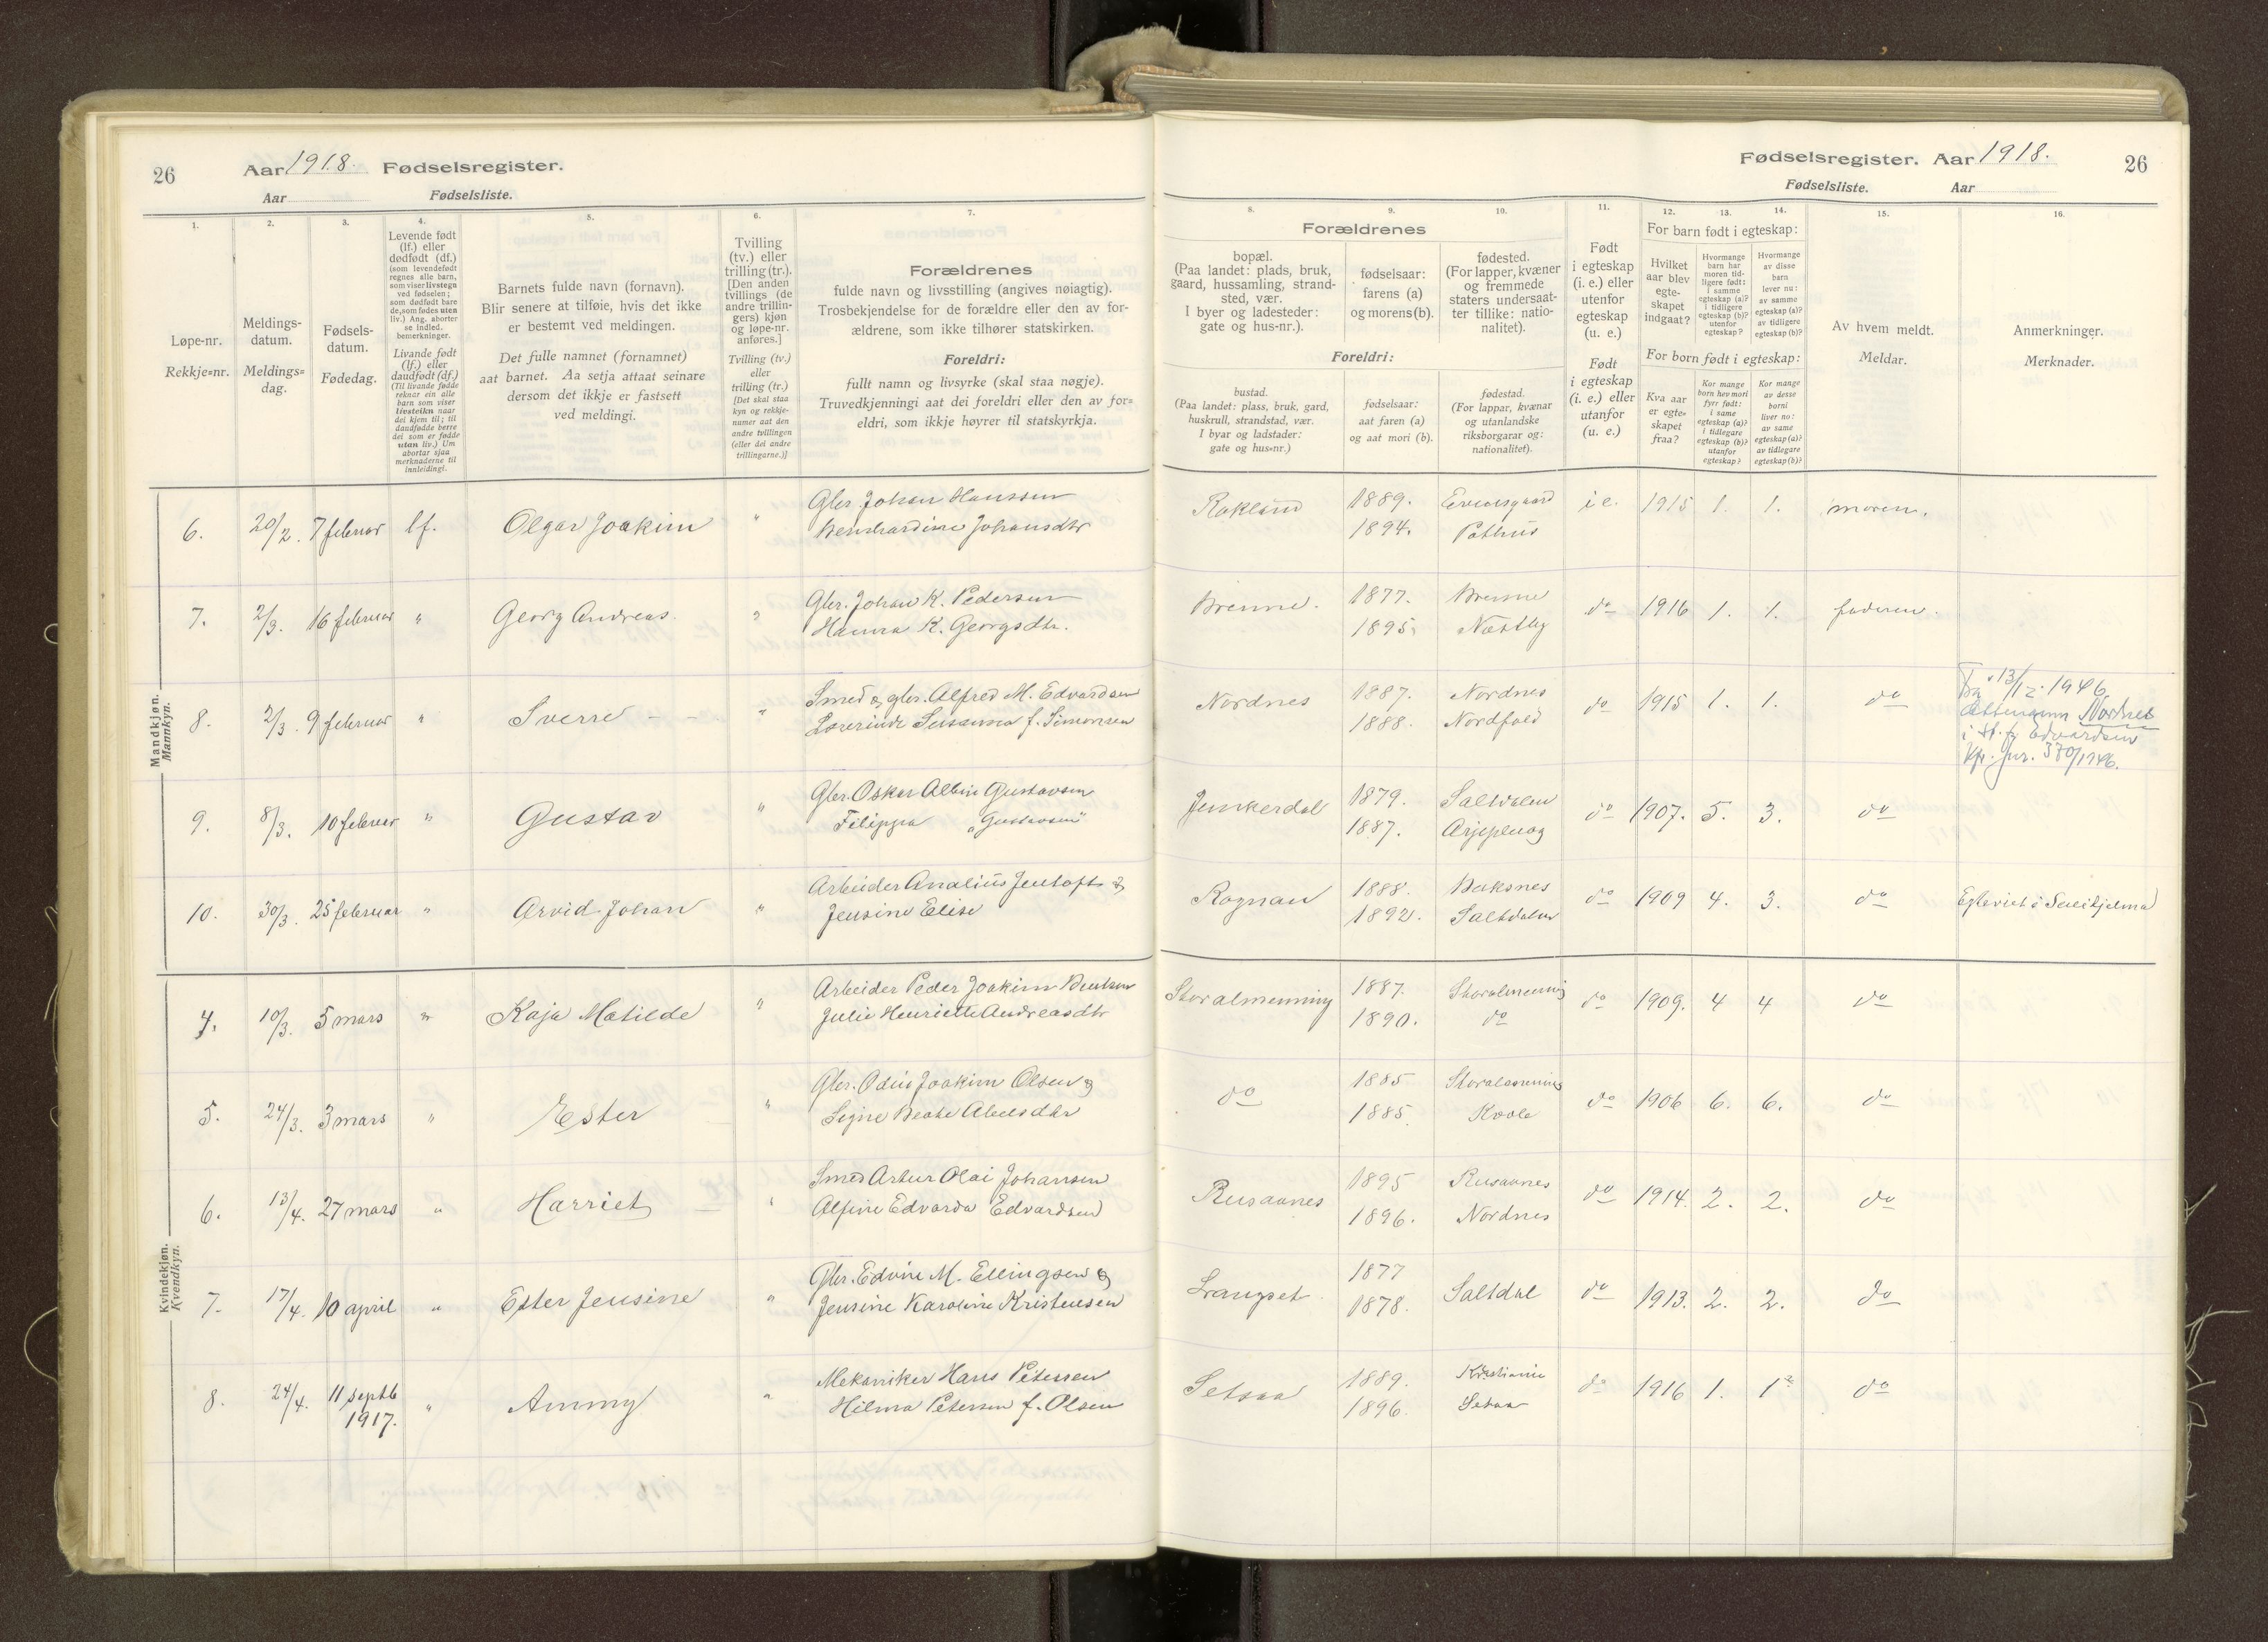 26 Aar 1918. Fødselsregister.
Aar Fødselsliste.
1. 2. 3. 4. 5. 6. 7.
Løpe-nr.
Rekkje=nr.
Meldings-
datum.
Meldings=
dag.
Fødsels-
datum.
Fødedag.
Levende født
(lf.) eller
dødfødt (df.)
(som levendefødt
regnes alle barn,
som viser livstegn
ved fødselen;
som dødfødt bare
de, som fødes uten
liv.) Ang. aborter
se indled.
bemerkninger.
Livande født
(lf.) eller
daudfødt (df.)
(Til livande fødde
reknar ein alle
barn som viser
livsteikn naar
dei kjem til; til
daudfødde berre
dei som er fødde
utan liv.) Um
abortar sjaa
merknaderne til
innleidingi.
Barnets fulde navn (fornavn).
Blir senere at tilføie, hvis det ikke
er bestemt ved meldingen.
Det fulle namnet (fornamnet)
aat barnet. Aa setja attaat seinare
dersom det ikkje er fastsett
ved meldingi.
Tvilling
(tv.) eller
trilling (tr.).
[Den anden
tvillings (de
andre trillin-
gers) kjøn
og løpe-nr.
anføres.]
Tvilling (tv.)
eller
trilling (tr.)
[Det skal staa
kyn og rekkje-
numer aat den
andre tvillingen
(eller dei andre
trillingarne.)]
Forældrenes
fulde navn og livsstilling (angives nøiagtig).
Trosbekjendelse for de forældre eller den av for-
ældrene, som ikke tilhører statskirken.
Foreldri:
fullt namn og livsyrke (skal staa nøgje).
Truvedkjenningi aat dei foreldri eller den av for=
eldri, som ikkje høyrer til statskyrkja.
Mandkjøn.
Mannkyn.
6. 20/2. 7 februar lf. Olgar Joakim " Gbr Johan Hanssen
Bernhardine Johansdtr
7. 2/3. 16 februar " Georg Andreas. " Gbr. Johan K. Pedersen
Hanna K. Georgsdtr.
8. 2/3. 9 februar " Sverre " Smed & gbr. Alfred M. Edvardsen
Susanna f. Simonsen
9. 8/3. 10 februar " Gustav " Gbr. Oskar Albin Gustavsen
Filippa "Gustavsen"
10. 30/3. 25 februar " Arvid Johan " Arbeider Analius Jentoft &
Jensine Elise
Kvindekjøn.
Kvendkyn.
4. 10/3. 5 mars " Kaja Matilde " Arbeider Peder Joakim Bentsen
Julie Henriette Andreasdtr
5. 24/3. 3 mars " Ester " Gbr. Odin Joakim Olsen &
Signe Beate Abelsdtr
6. 13/4. 27 mars " Harriet " Smed Artur Olai Johansen
Alfine Edvarda Edvardsen
7. 17/4. 10 april " Ester Jensine " Gbr. Edvin M. Ellingsen &
Jensine Karoline Kristensen
8. 24/4. 11 septb " Ammy " Mekaniker Hans Petersen
1917. Hilma Petersen f. Olsen
Fødselsregister. Aar 1918. 26
Fødselsliste. Aar
8. 9. 10. 11. 12. 13. 14. 15. 16.
Forældrenes
bopæl.
(Paa landet: plads, bruk,
gaard, hussamling, strand-
sted, vær.
I byer og ladesteder:
gate og hus-nr.).
fødselsaar:
farens (a)
og morens (b).
fødested.
(For lapper, kvæner
og fremmede
staters undersaat-
ter tillike: natio-
nalitet).
Foreldri:
bustad.
(Paa landet: plass, bruk, gard,
huskrull, strandstad, vær.
I byar og ladstader:
gate og hus=nr.)
fødselsaar:
aat faren (a)
og aat mori (b).
fødestad.
(For lappar, kvænar
og utanlandske
riksborgarar og:
nationalitet).
Født
i egteskap
(i. e.) eller
utenfor
egteskap
(u. e.)
Født
i egteskap
(i. e.) eller
utanfor
(u. e.)
For barn født i egteskap:
Hvilket
aar blev
egte-
skapet
indgaat?
Hvormange
barn har
moren tid-
ligere født:
i samme
egteskap (a)?
i tidligere
egteskap (b)?
utenfor
egteskap?
Hvormange
av disse
barn
lever nu:
av samme
egteskap (a)?
av tidligere
egteskap (b)?
For born født i egteskap:
Kva aar
er egte=
skapet
fraa?
Kor mange
born hev mori
fyrr født:
i same
egteskap (a)?
i tidlegare
egteskap (b)?
utanfor
egteskap?
Kor mange
av desse
borni
liver no:
av same
egteskap (a)?
av tidlegare
egteskap (b)?
Av hvem meldt.
Meldar.
Anmerkninger.
Merknader.
Rokland 1889. Evensgaard i e. 1915 1. 1. moren.
1894. Pothus
Brenne. 1877. Brenne do 1916 1. 1. faderen.
1895. Næstby
Nordnes 1887. Nordnes do 1915 1. 1. do
1888. Nordfold
13/12 1946
Nordnes
i st. f. Edvardsen
Kp. jnr. 370/1946.
Junkerdal 1879. Saltdalen do 1907. 5. 3. do
1887. Arjepluog
Rognan 1888. Buksnes do 1909 4. 3. do
1892. Saltdalen
Storalmenning 1887. Storalmenning do 1909. 4 4 do
1890. do
do 1885 Storalmenning do 1906 6. 6. do
1885. Kvole
Rusaanes 1895 Rusaanes do 1914. 2. 2. do
1896. Nordnes
Langset 1877 Saltdal do 1913. 2. 2. do
1878.
Setsaa 1889. Kristiania do 1916 1. 1 do
1896. Setsaa